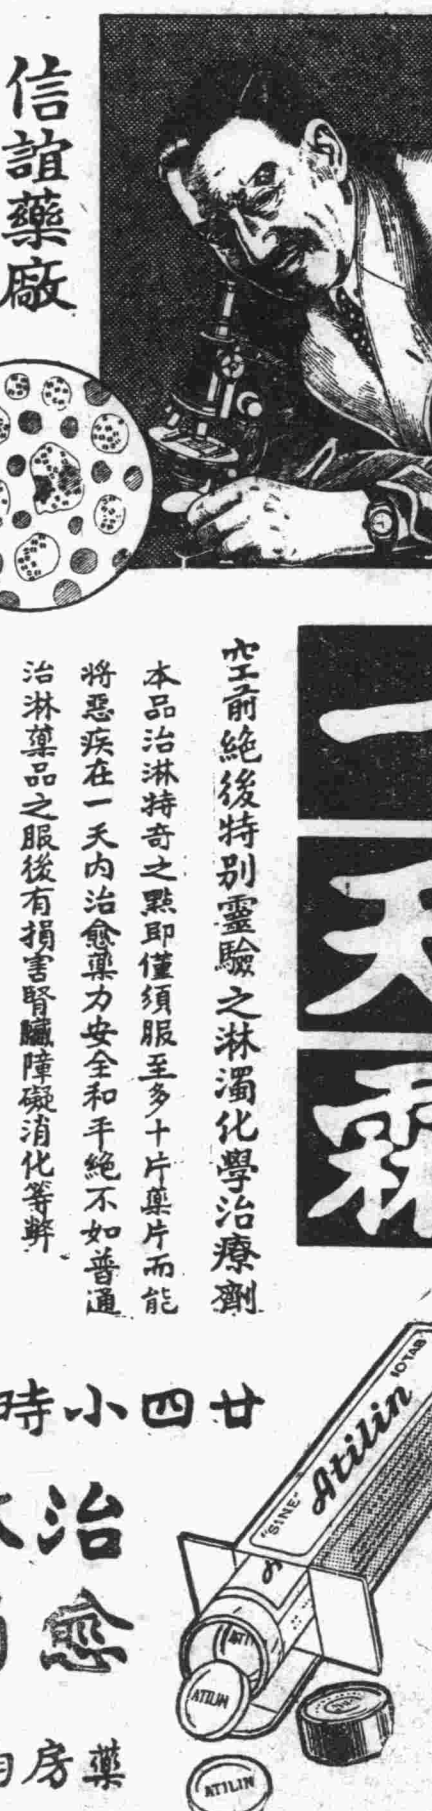 信誼藥廠
一
天
空前絕後特別靈驗之淋濁化學治療劑
本品治淋特奇之點即僅須服至多十片藥片而能
將惡疾在一天內治愈藥力安全和平絕不如普通
治淋藥品之服後有損害腎臟障礙消化等弊
廿四小時
治
愈
藥房
10 TAB
"SINE"
Atilin
ATILIN
ATILIN